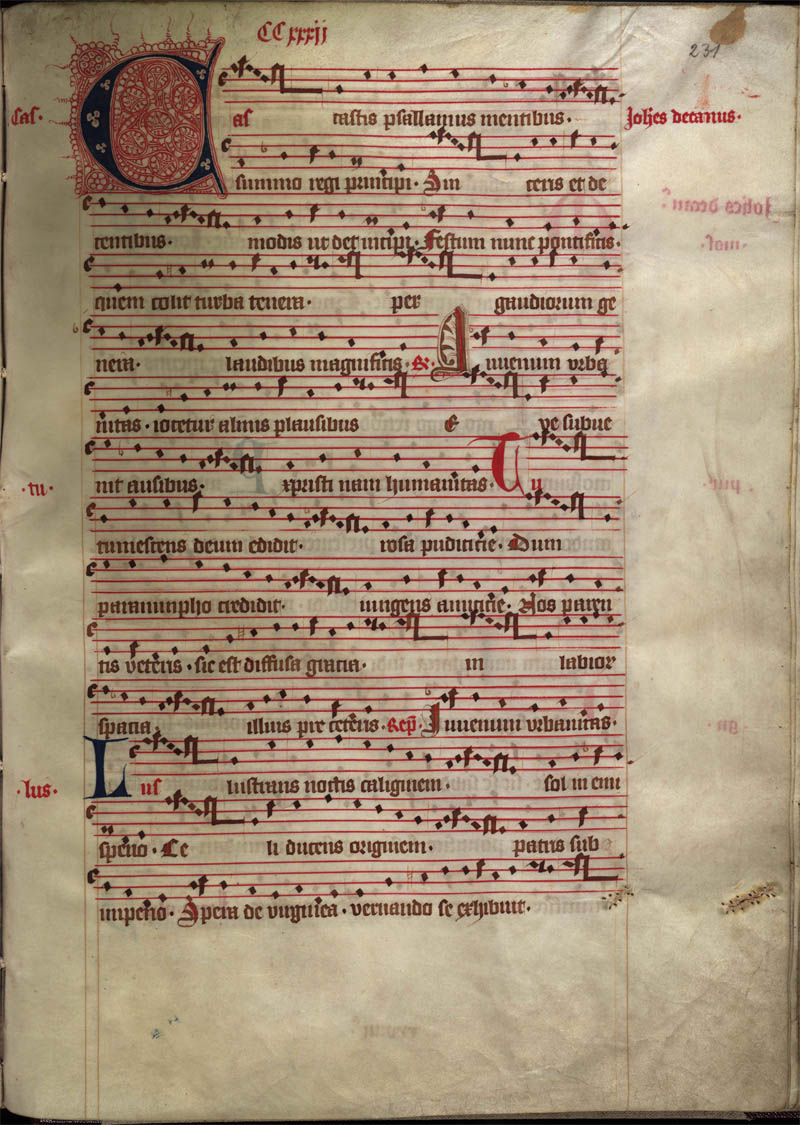 CCxxxii
231
Cas· as castis psallamus mentibus· Johes decanus·
summo regi principi· Sin ceris et de
centibus· modis ut det incipi· Festum nunc pontificis·
quem colit turba tenera· per gaudiorum ge
nera· laudibus magnificis· Iuuenum vrba
nitas· iocetur almis plausibus E ve subue
nit ausibus· xpristi nam humanitas· Tu
·tu· tumescens deum edidit· rosa pudicicie· Dum
paranimpho credidit· iungens amicicie· Nos
tis veteris· sic est diffusa gracia· in labior
spacia illius pre ceteris· Iuuenum vrbanitas·
·lus· Lus lustrans noctis caliginem· sol in emi
sperio· Ce li ducens originem· patris sub
imperio· Spera de virginea· vernando se exhibuit·